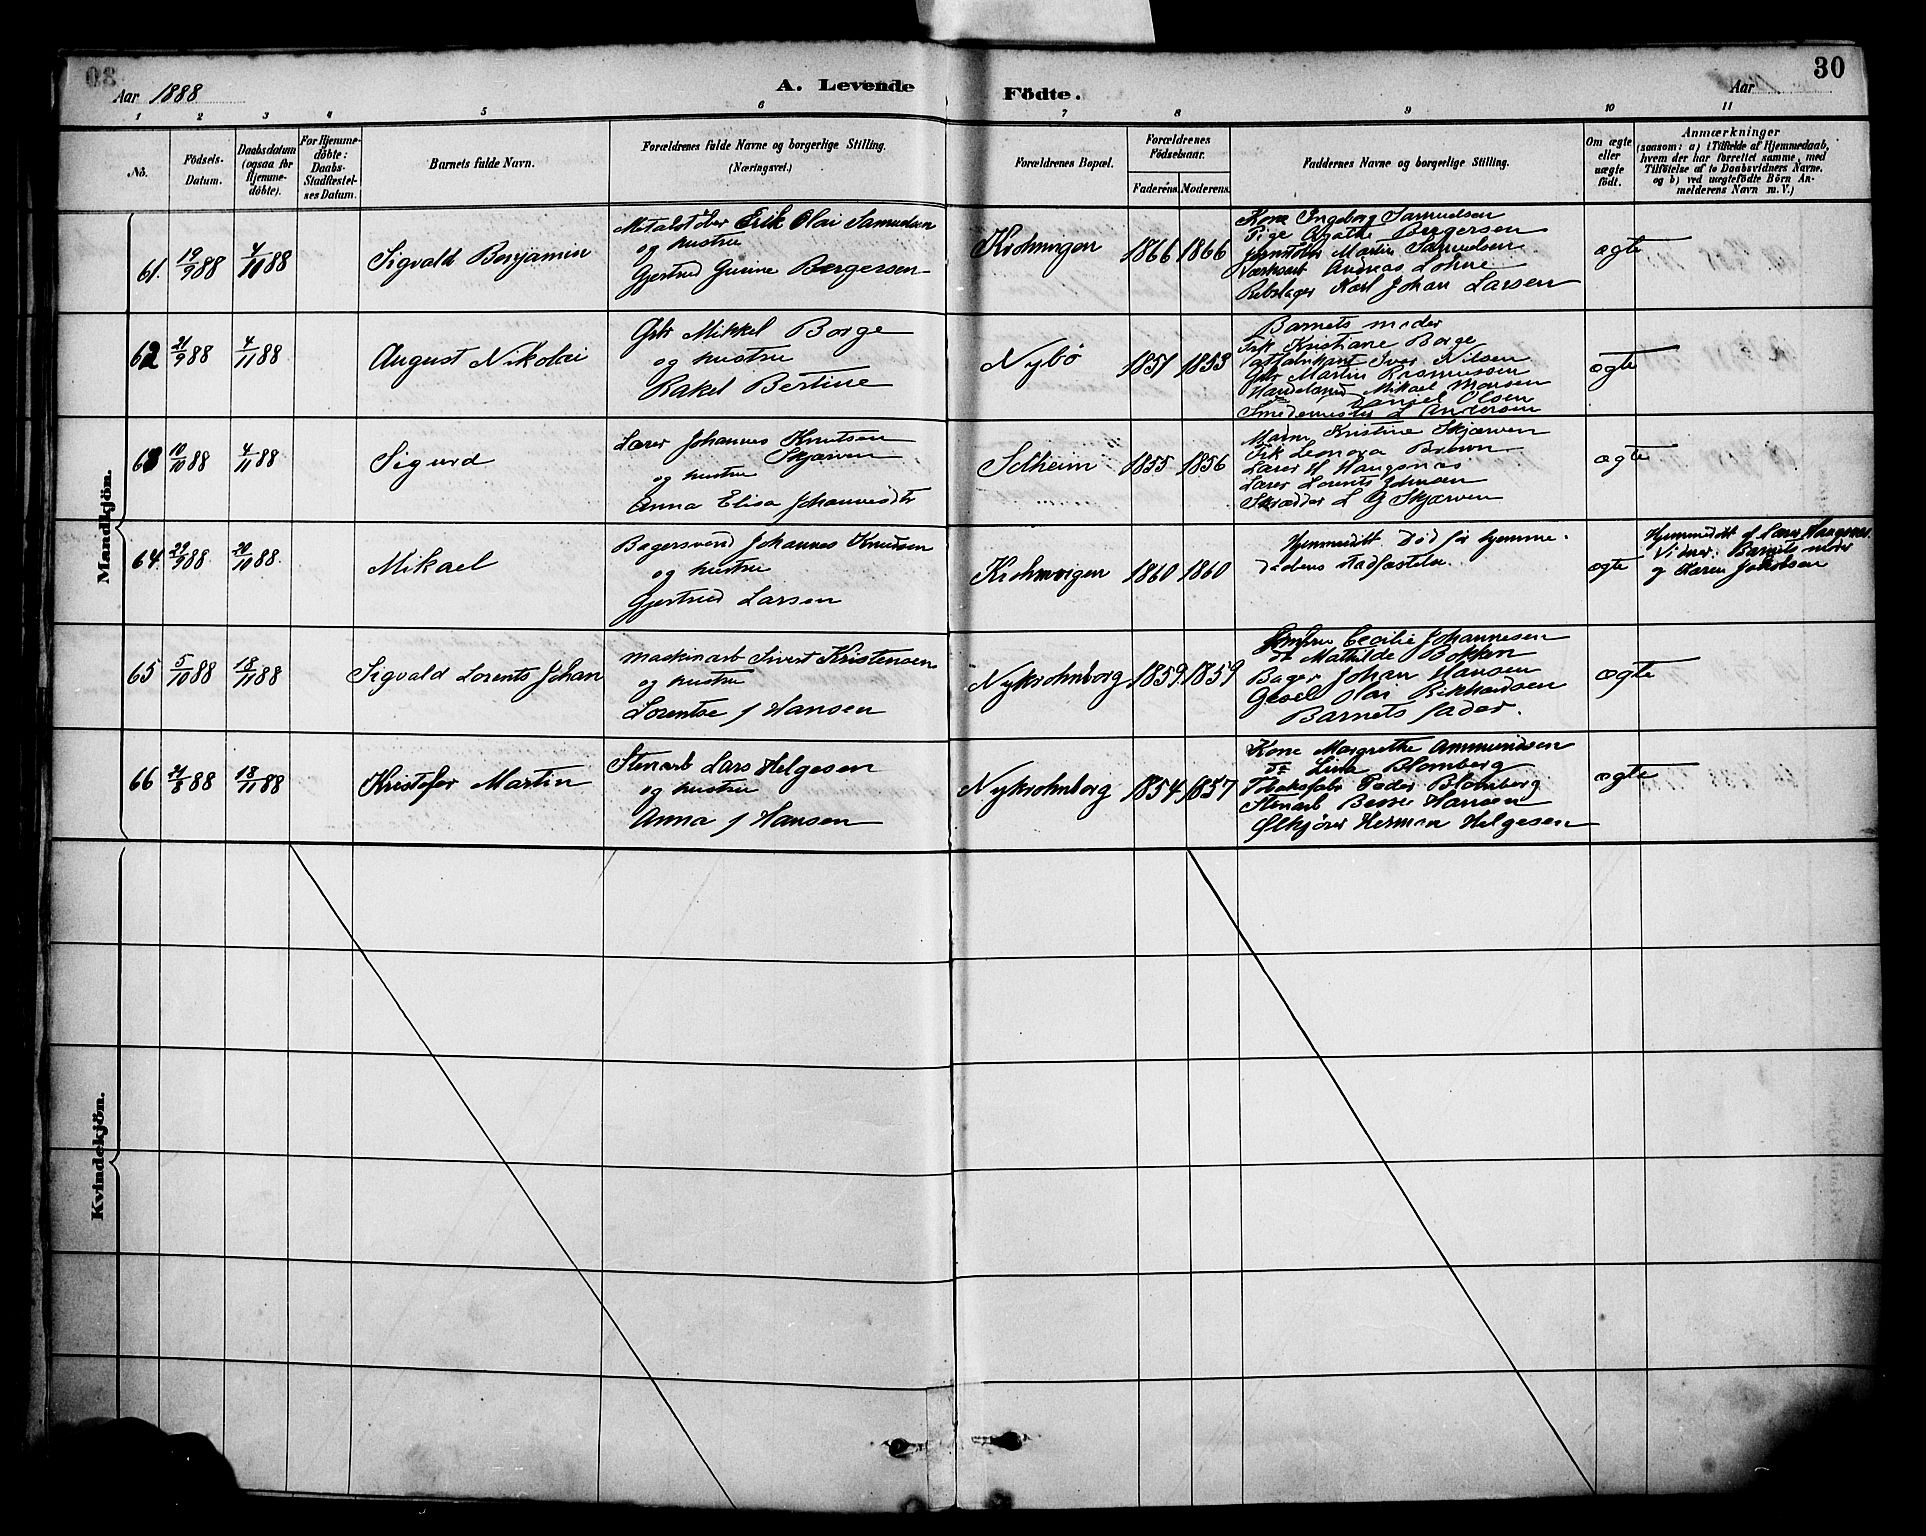 30
Aar 1888
A. Levende Födte.
Aar
1 2 3 4 5 6 7 8 9 10 11
No.
Födsels-Datum.
Daabsdatum (ogsaa for Hjemme-döbte).
For Hjemme-döbte: Daabs-Stadfæstel-ses Datum.
Barnets fulde Navn.
Forældrenes fulde Navne og borgerlige Stilling. (Næringsvei.)
Forældrenes Bopæl.
Forældrenes Födselsaar.
Faderens. Moderens.
Faddernes Navne og borgerlige Stilling.
Om ægte eller uægte födt.
Anmærkninger
(saasom: a) i Tilfælde af Hjemmedaab, hvem der har forrettet samme, med Tilföielse af to Daabsvidners Navne, og b) ved uægtefödte Börn An-melderens Navn m. V.)
Mandkjön.
61. 19/9 88 4/11 88 Sigvald Benjamin
Metalstöber Erik Olai Samuelsen
og hustru
Gjertrud Gurine Bergersen
Krohnengen 1866 1866
Kone Ingeborg Samuelsen
Pige Agathe Bergersen
Jernstöber Martin Samuelsen
Værksarb Andreas Lohne
Rebslager Karl Johan Larsen
ægte
62 21/9 88 4/11 88 August Nikolai
Gbr Mikkel Borge
og hustru
Rakel Bertine
Nybö 1851 1853
Barnets moder
Frk Kristiane Borge
Iver Nilsen
Gbr Martin Rasmussen
Handelsmd Mikael Monsen
do Daniel Olsen
Smedemester L Andersen
ægte
63 10/10 88 4/11 88 Sigurd
Lærer Johannes Knutsen
Skjærven
og hustru
Anna Elisa Johannesdtr
Solheim 1855 1856
Madm Kristine Skjærven
Frk Leonora Brown
Lærer H Haugsnæs
Lærer Lorents Johnsen
Skrædder L G Skjærven
ægte
64. 29/9 88 20/10 88. Mikael
Bagersvend Johannes Knudsen
og hustru
Gjertrud Larsen
Krohnengen 1860 1860
Hjemmedöbt Död för hjemme-
daabens stadfæstelse
ægte
Hjemmedöbt af Lærer Haugsnæs.
Vidner: Barnets moder
og Karen Jakobsen
65 5/10 88 18/11 88 Sigvald Lorents Johan
Maskinarb Sivert Kristensen
og hustru
Lorentse J Hansen
Nykrohnborg 1859 1859
Cecilie Johannesen
do Mathilde Bokken
Bager Johan Hansen
Gesel Olai Rikhardsen
Barnets fader.
ægte
66 21/8 88 18/11 88 Kristofer Martin
Stenarb Lars Helgesen
og hustru
Anna J Hansen
Nykrohnborg 1854 1857
Kone Margrethe Ammundsen
do Lina Blomberg
Tobaksfabr Peder Blomberg
Stenarb Hansen
Ølkjörer Herman Helgesen
ægte
Kvindekjön.